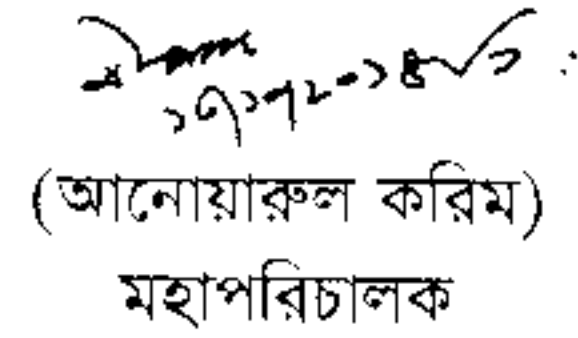 (আনোয়ারুল করিম)
মহাপরিচালক